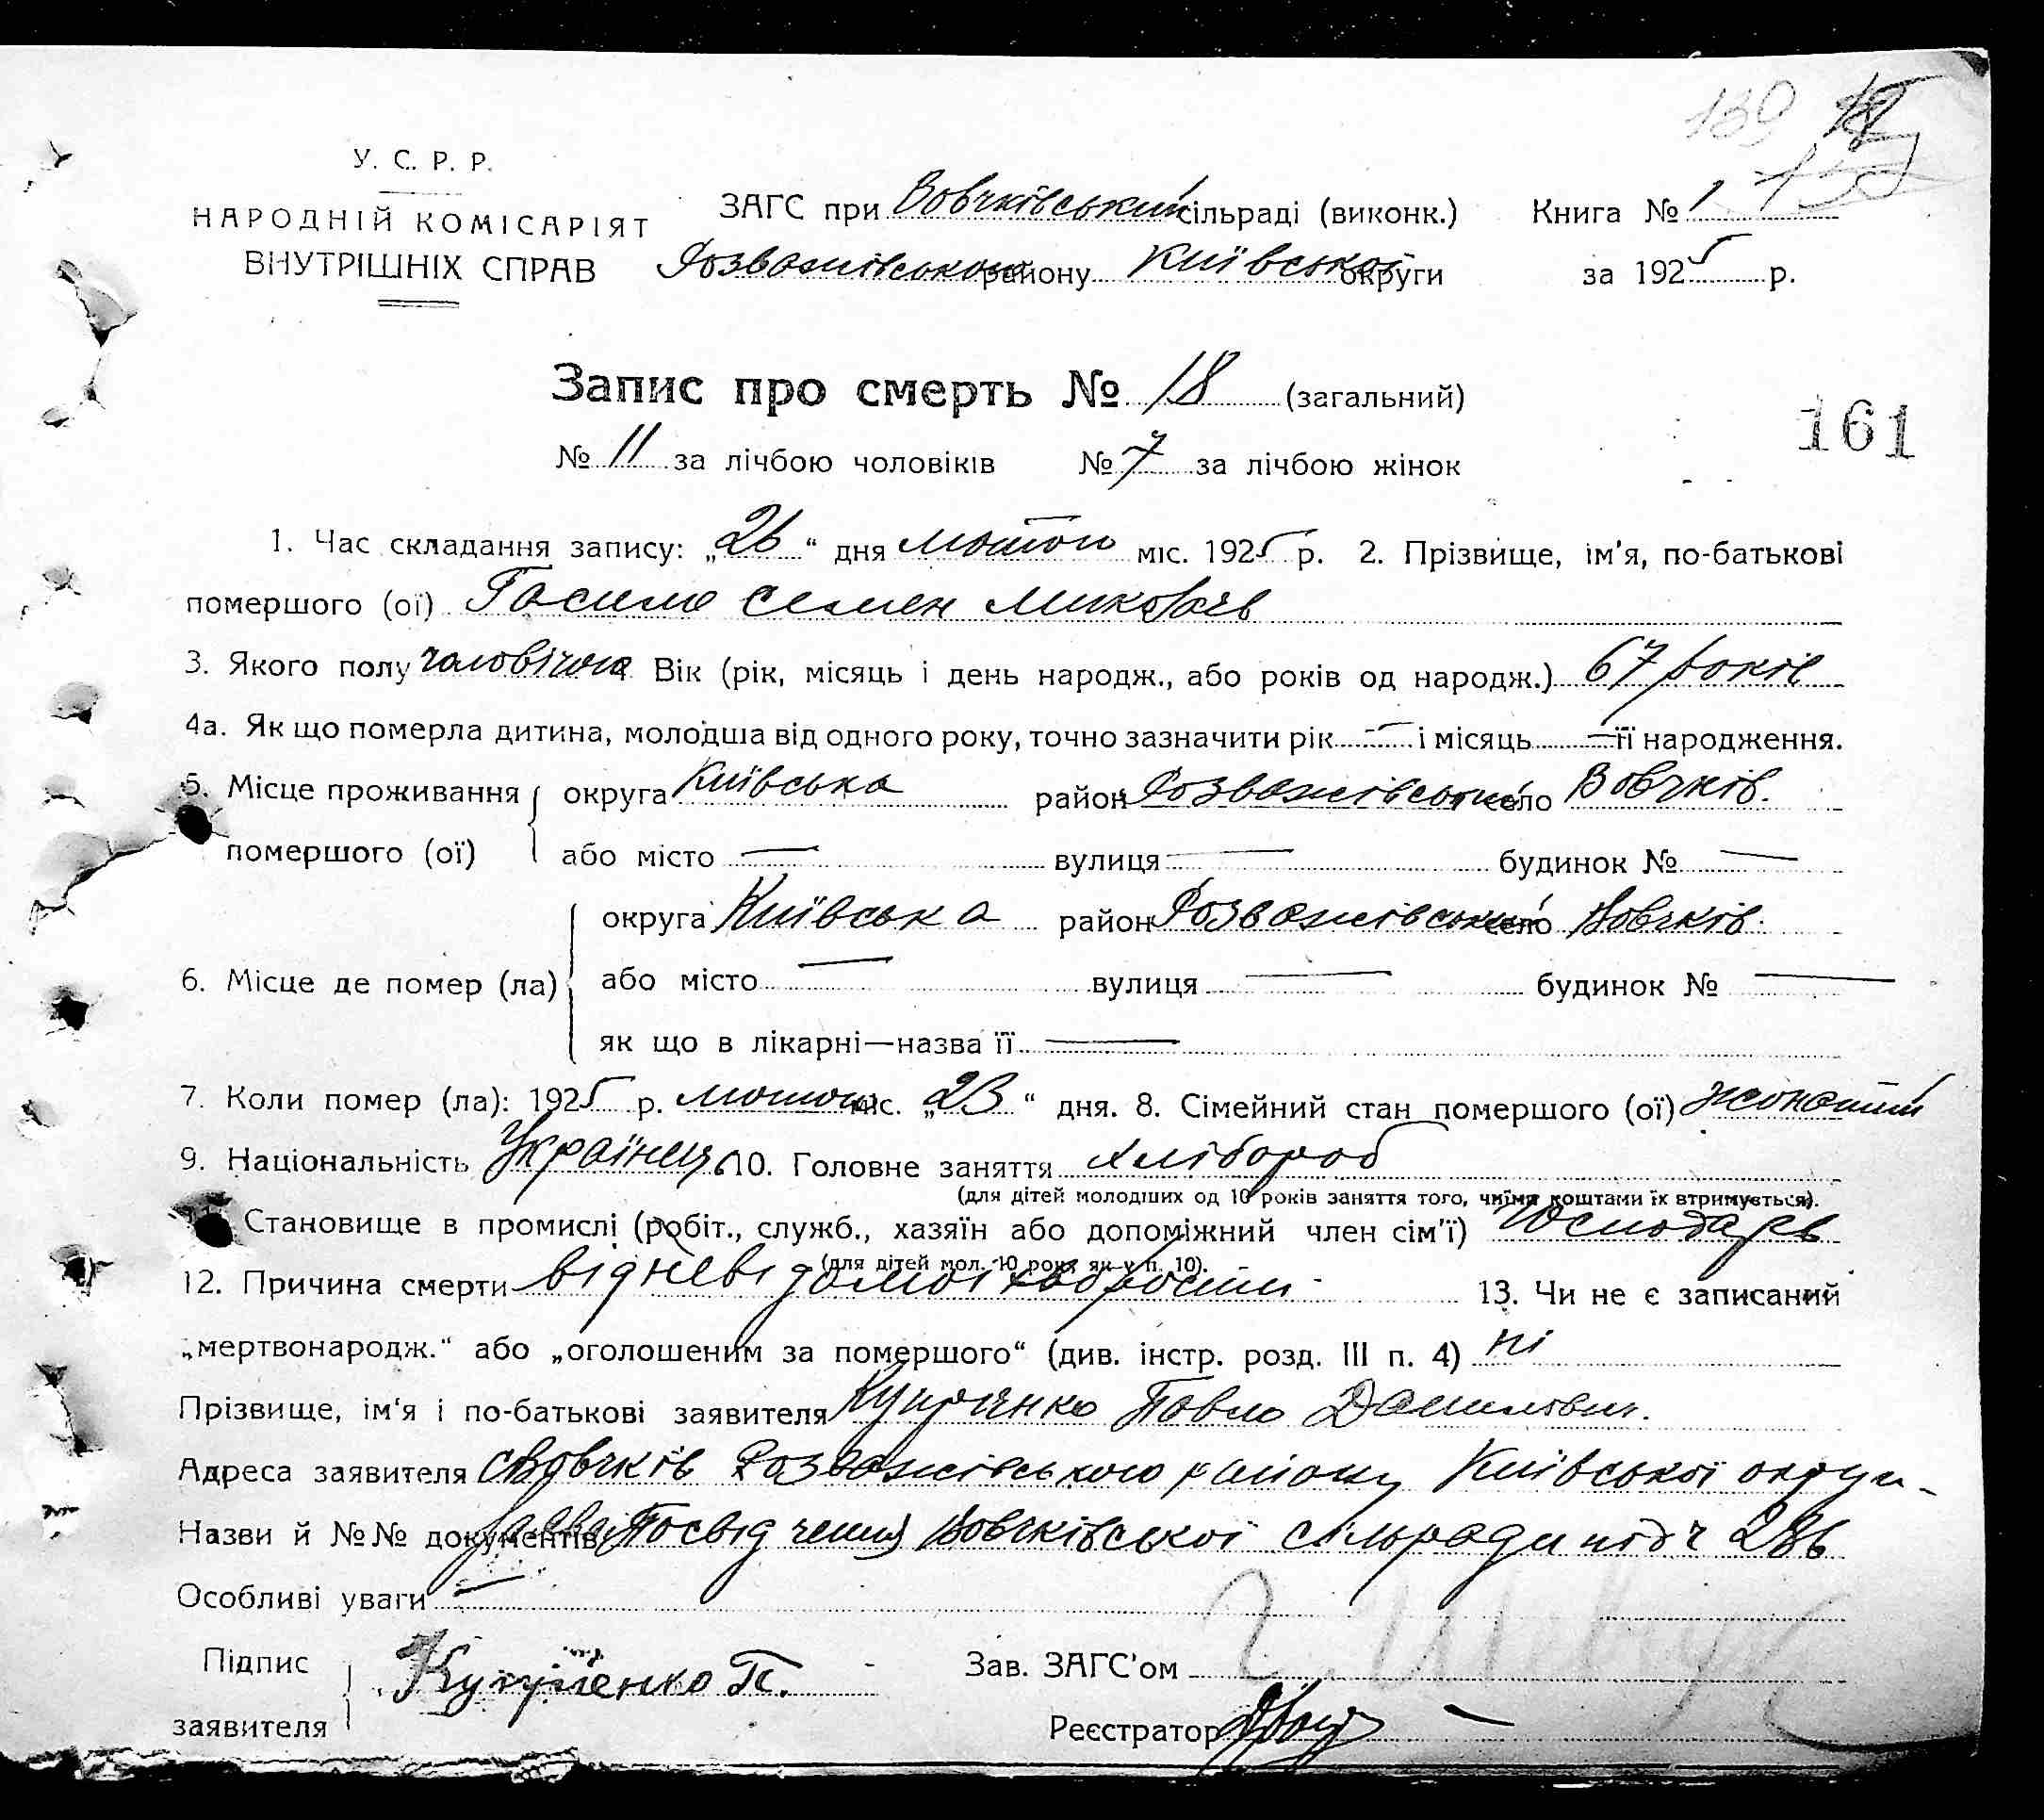 139
У. С. Р. Р.
НАРОДНІЙ КОМІСАРІЯТ
ВНУТРІШНІХ СПРАВ
ЗАГС при Вовчківський сільраді (виконк.) Книга № 1
Розважівського району Київської округи за 1925 р.
Запис про смерть № 18 (загальний)
161
№ 11 за лічбою чоловіків № 7 за лічбою жінок
1. Час складання запису: „26“ дня лютого міс. 1925 р. 2. Прізвище, ім'я, по-батькові
помершого (ої) Гасило Семен
3. Якого полу чоловічого Вік (рік, місяць і день народж., або років од народж.) 67 років
4а. Як що померла дитина, молодша від одного року, точно зазначити рік — і місяць — її народження.
5. Місце проживання округа Київська район Розважівський село Вовчків.
помершого (ої) або місто — вулиця — будинок № —
округа Київська район Розважівський село Вовчків.
6. Місце де помер (ла) або місто — вулиця — будинок № —
як що в лікарні—назва її —
7. Коли помер (ла): 1925 р. лютого міс. „23“ дня. 8. Сімейний стан помершого (ої) жонатий
9. Національність Українець 10. Головне заняття хлібороб
(для дітей молодших од 10 років заняття того, чиїми коштами їх втримується).
Становище в промислі (робіт., служб., хазяїн або допоміжний член сім'ї) Господарь
(для дітей мол. 10 рок. як у п. 10).
12. Причина смерти від невідомої хворости 13. Чи не є записаний
„мертвонародж.“ або „оголошеним за помершого“ (див. інстр. розд. III п. 4) ні
Прізвище, ім'я і по-батькові заявителя Павло Данилович.
Адреса заявителя с Вовчків Розважівського району Київської округи
Назви й №№ документів Посвідчення Вовчківської сільради під ч 286
Особливі уваги —
Підпис
заявителя
П.
Зав. ЗАГС'ом
Реєстратор